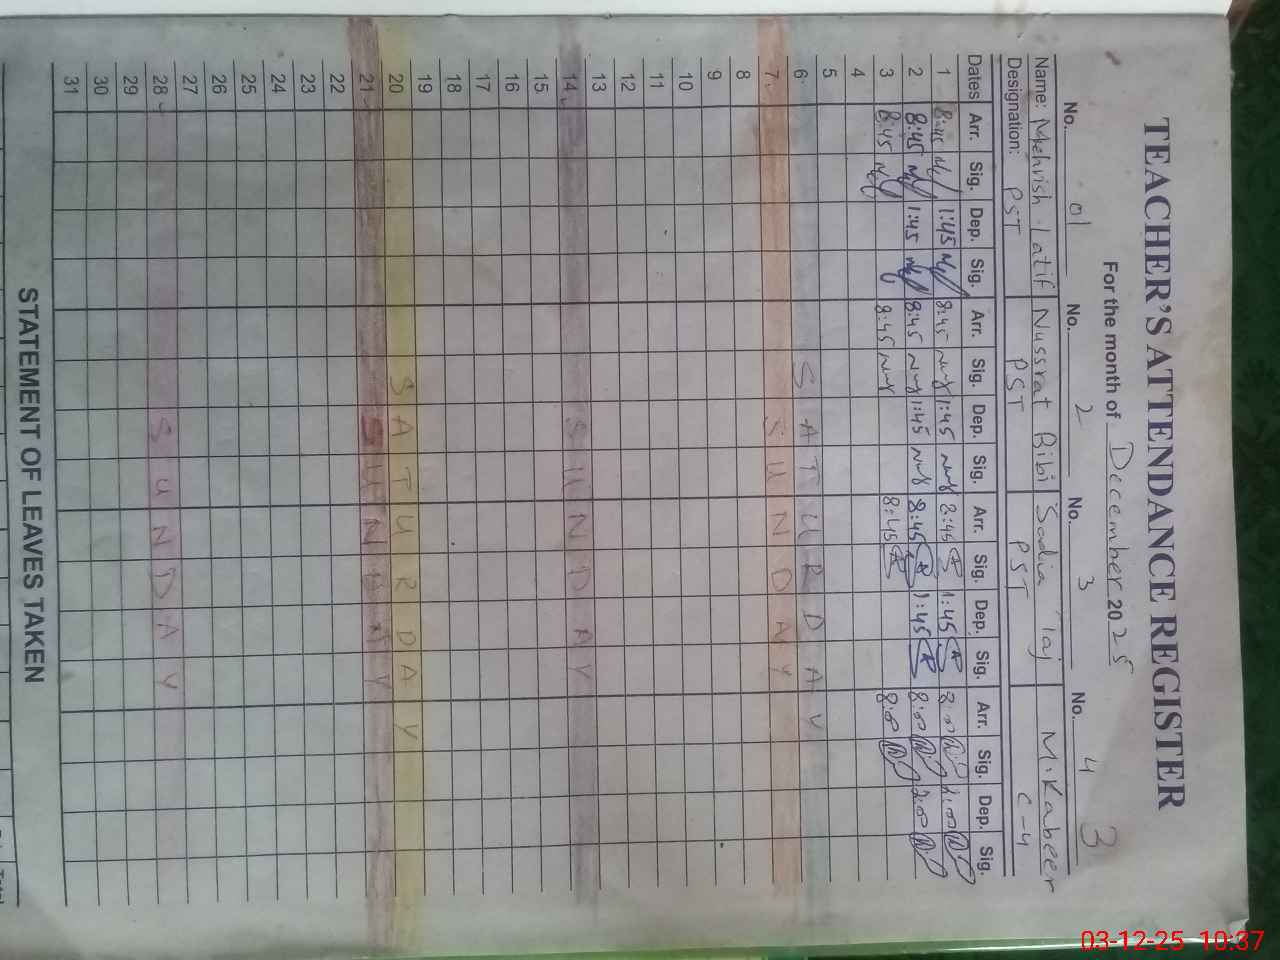 TEACHER'S ATTENDANCE REGISTER
For the month of December 2025
3
No. 01 No. 2 No. 3 No. 4
Name: Mehrish Latif Nussrat Bibi Sadia Taj M. Kabeer
Designation: PST PST PST C-4
Dates Arr. Sig. Dep. Sig. Arr. Sig. Dep. Sig. Arr. Sig. Dep. Sig. Arr. Sig. Dep. Sig.
1 8:45 1:45 8:45 1:45 8:45 1:45 8:00 2:00
2 8:45 1:45 8:45 1:45 8:45 1:45 8:00 2:00
3 8:45 8:45 8:45 8:00
4
5
6 SATURDAY
7 SUNDAY
8
9
10
11
12
13
14 SUNDAY
15
16
17
18
19
20 SATURDAY
21 SUNDAY
22
23
24
25
26
27
28 SUNDAY
29
30
31
STATEMENT OF LEAVES TAKEN
Total
03-12-25 10:37